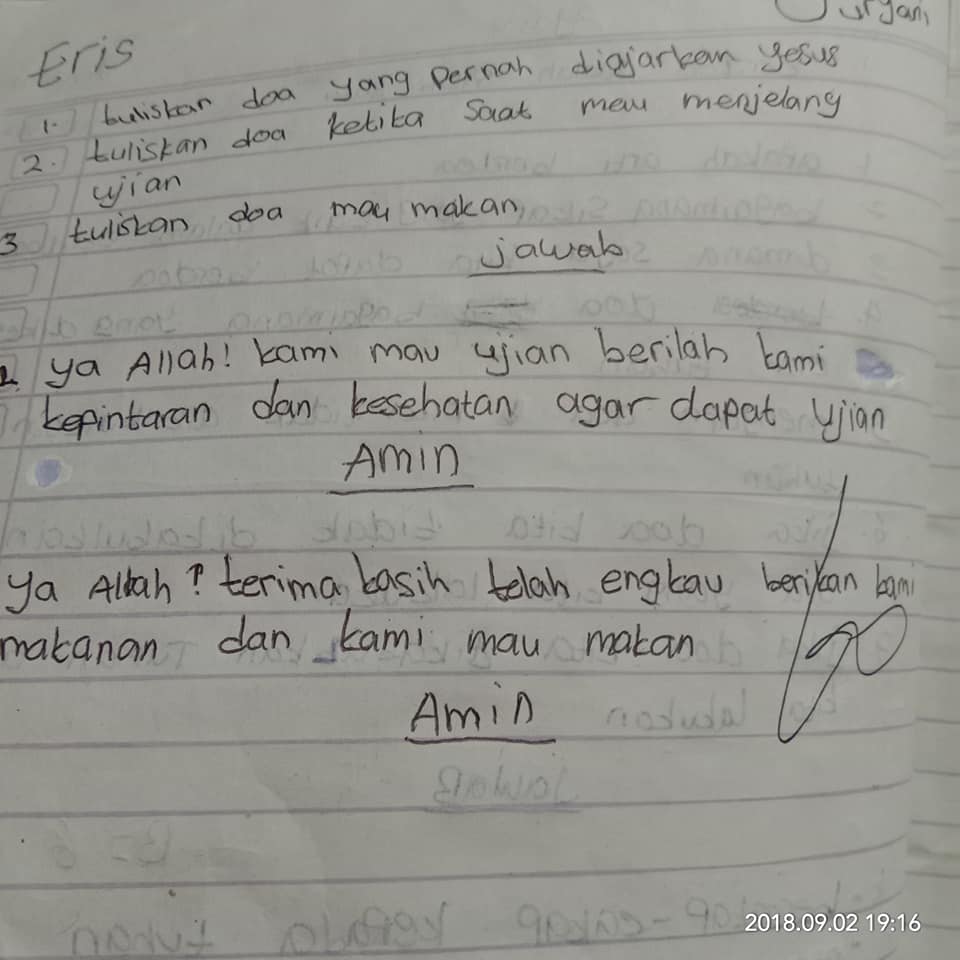 Suryani
Eris
1. tuliskan doa yang pernah diajarkan yesus
2. tuliskan doa ketika saat mau menjelang
ujian
3 tuliskan doa mau makan
jawab
2. ya Allah! kami mau ujian berilah kami
kepintaran dan kesehatan agar dapat ujian
Amin
ya Allah! terima kasih telah engkau berikan kami
makanan dan kami mau makan
Amin
2018.09.02 19:16